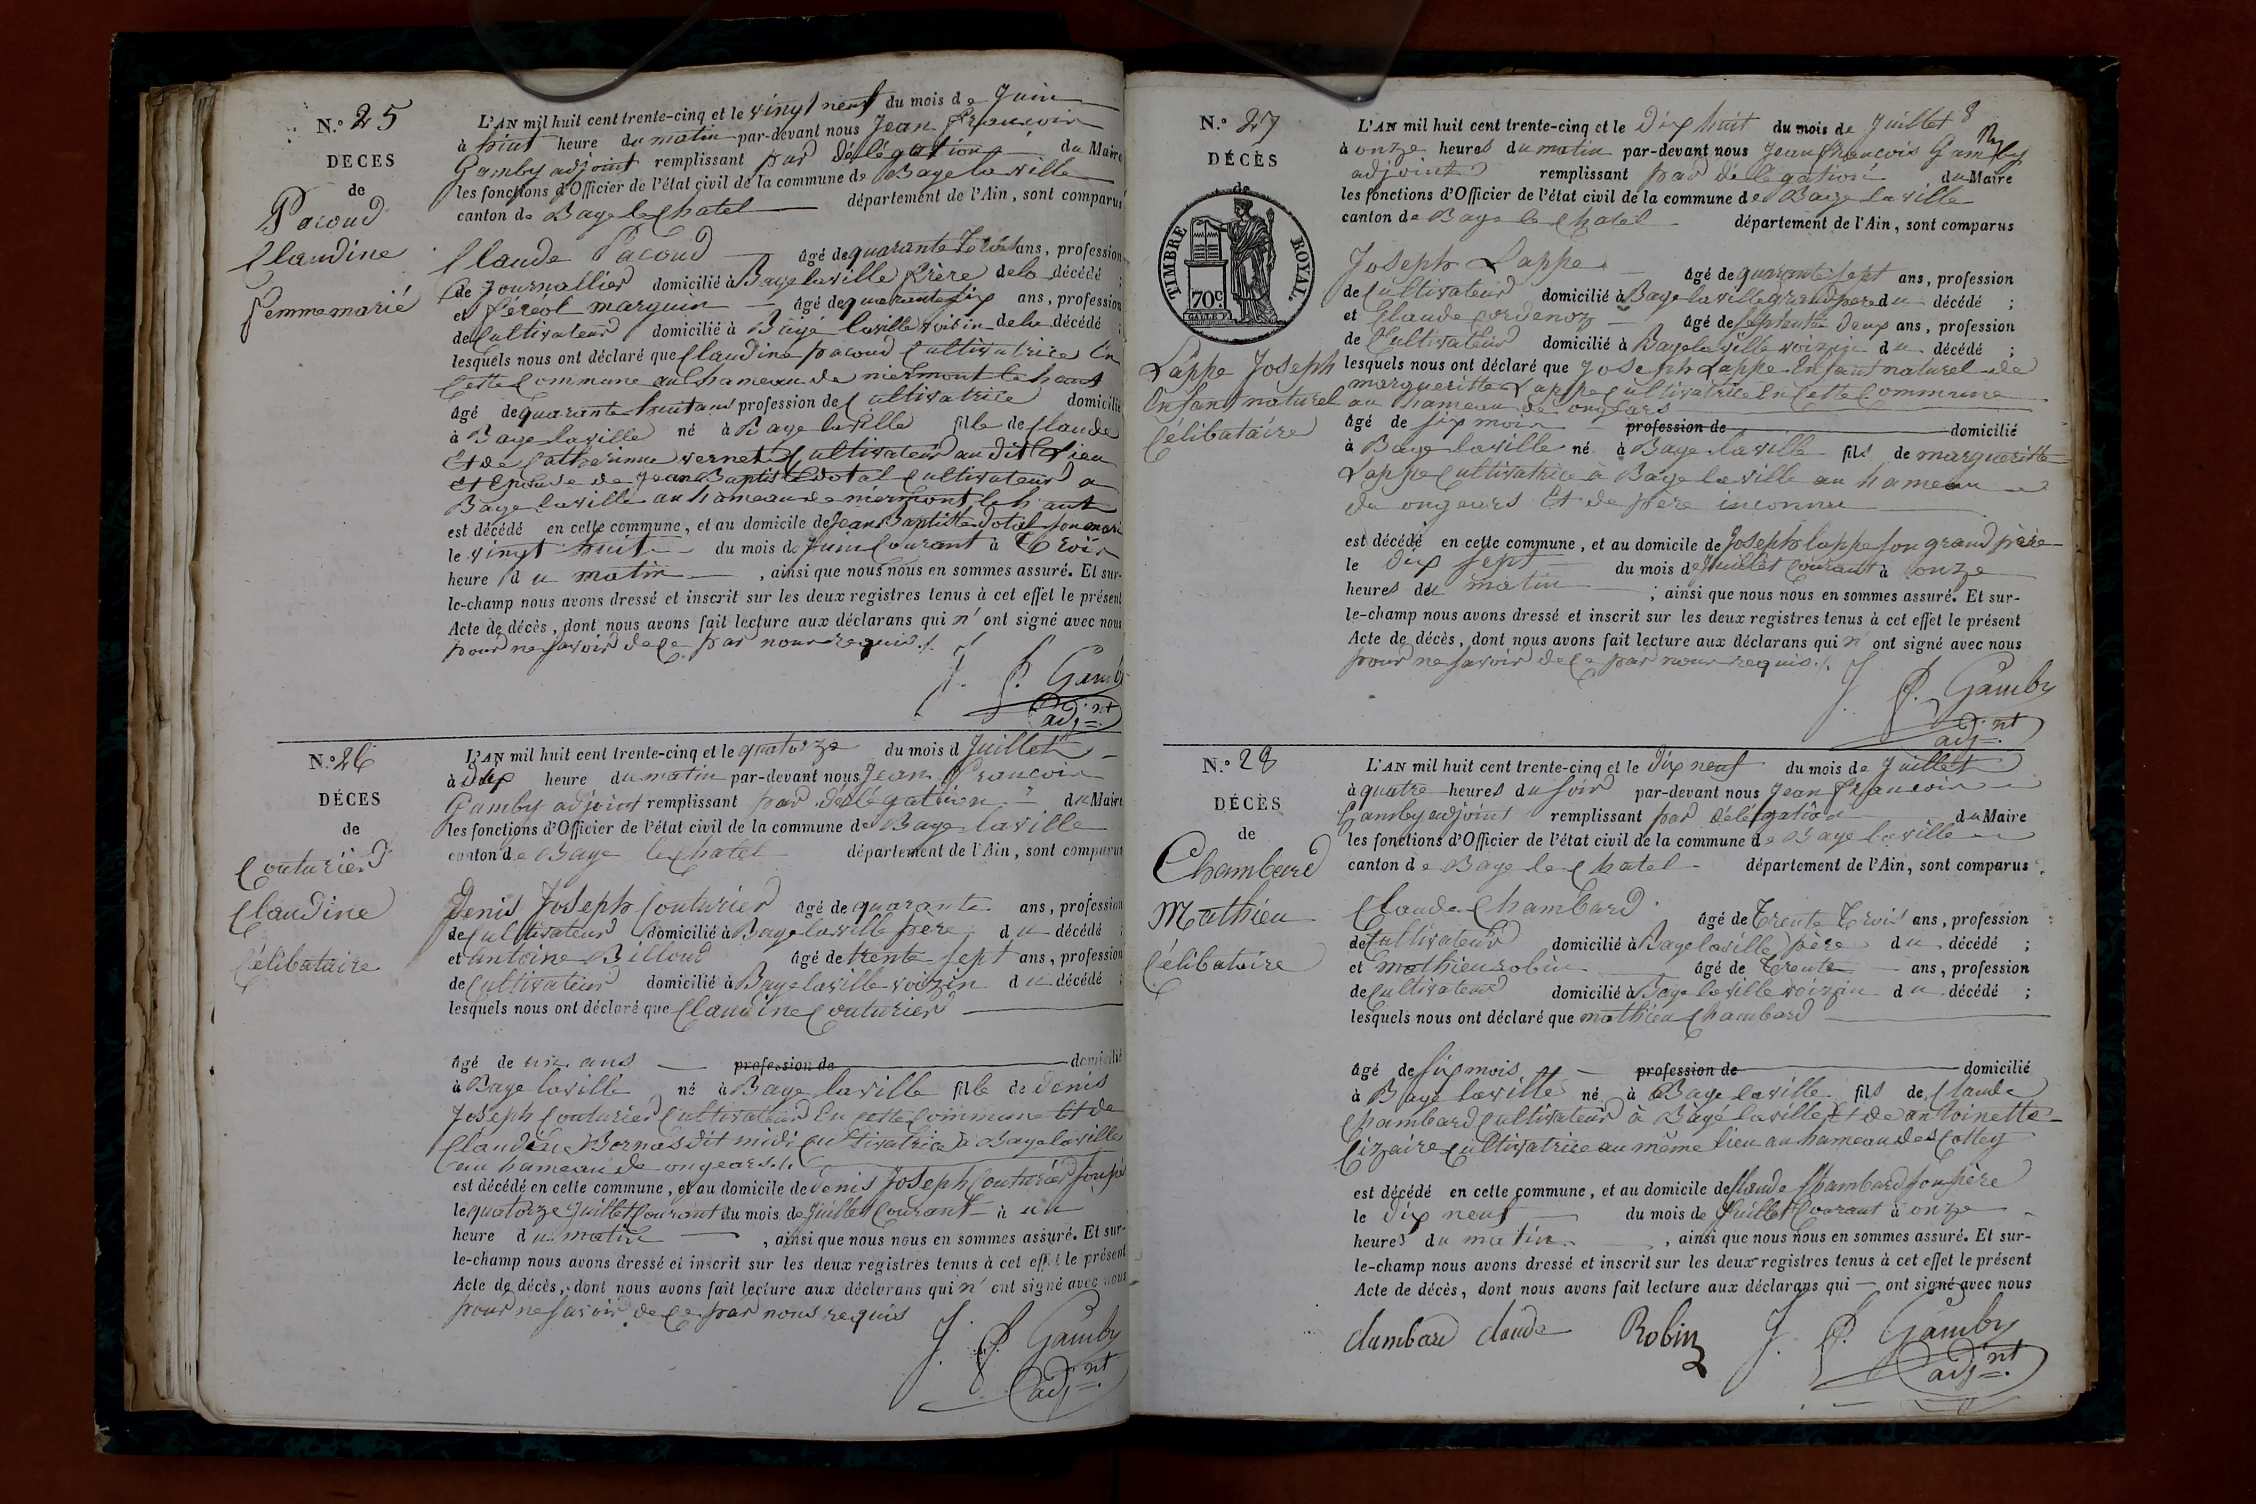 N.° 25
DECES
de
Pacoud
Claudine
femme marié
L'AN mil huit cent trente-cinq et le vingt neuf du mois de Juin
à huit heure du matin par-devant nous Jean francois
Gamby adjoint remplissant par délégation du Maire
les fonctions d'Officier de l'état civil de la commune de Bage la ville
canton de Bage le Chatel département de l'Ain, sont comparus
Claude Pacoud âgé de quarante trois ans, profession
de Journallier domicilié à Bage laville frère de la décédé ;
et féréol marguin âgé de quarante six ans, profession
de Cultivateur domicilié à Bagé laville voisin de la décédé ;
lesquels nous ont déclaré que Claudine pacoud Cultivatrice En
Cette Commune au hameau de niermont le haut
âgé de quarante huit ans profession de Cultivatrice domicilié
à Bage laville né à Bage laville fille de Claude
Et de Catherinne vernet Cultivateur au dit Lieu
Et Epouse de Jean Baptiste dotal Cultivateur a
Bage laville au hameau de niermont le haut
est décédé en cette commune, et au domicile de Jean Baptiste dotal son mari
le vingt huit du mois de Juin Courant à trois
heure du matin , ainsi que nous nous en sommes assuré. Et sur-
le-champ nous avons dressé et inscrit sur les deux registres tenus à cet effet le présent
Acte de décès, dont nous avons fait lecture aux déclarans qui n' ont signé avec nous
pour ne savoir de Ce par nous requis ./.
J. f. Gamby
adj.nt
N.° 26
DÉCES
de
Couturier
Claudine
Célibataire
L'AN mil huit cent trente-cinq et le quatorze du mois d Juillet
à dix heure du matin par-devant nous Jean francois
Gamby adjoint remplissant par délégation du Maire
les fonctions d'Officier de l'état civil de la commune de Bage laville
canton de Bage le Chatel département de l'Ain, sont comparus
Denis Joseph Couturier âgé de quarante ans, profession
de Cultivateur domicilié à Bage laville pere du décédé ;
et antoine Billoud âgé de trente sept ans, profession
de Cultivateur domicilié à Bage laville voizin du décédé ;
lesquels nous ont déclaré que Claudine Couturier
âgé de un ans profession de domicilié
à Bage laville né à Bage laville fille de denis
Joseph Couturier Cultivateur En cette Commune Et de
Claudine Bornas dit midi Cultivatrice à Bage laville
au hameau de ongears ./.
est décédé en cette commune, et au domicile de denis Joseph Couturier son père
le quatorze Juillet Courant du mois de Juillet Courant à un
heure du matin , ainsi que nous nous en sommes assuré. Et sur-
le-champ nous avons dressé et inscrit sur les deux registres tenus à cet effet le présent
Acte de décès, dont nous avons fait lecture aux déclarans qui n' ont signé avec nous
pour ne savoir de Ce par nous requis
J. f. Gamby
adj.nt
N.° 27
DÉCÈS
de
TIMBRE ROYAL.
70c
Lappe Joseph
Enfant naturel
Célibataire
L'AN mil huit cent trente-cinq et le Dix huit du mois de Juillet
à onze heures du matin par-devant nous Jean francois Gamby
adjoint remplissant par délégation du Maire
les fonctions d'Officier de l'état civil de la commune de Bage laville
canton de Bage le Chatel département de l'Ain, sont comparus
Joseph Lappe âgé de quarante sept ans, profession
de Cultivateur domicilié à Bage laville grand pere du décédé ;
et Claude Cordenoz âgé de septente deux ans, profession
de Cultivateur domicilié à Bage laville voizin du décédé ;
lesquels nous ont déclaré que Joseph Lappe Enfant naturel de
margueritte Lappe Cultivatrice En Cette Commune
au hameau de ongears
âgé de six mois profession de domicilié
à Bage laville né à Bage laville fils de margueritte
Lappe Cultivatrice à Bage laville au hameau
de ongears Et de père inconnu
est décédé en cette commune, et au domicile de Joseph lappe son grand père
le dix sept du mois de Juillet Courant à onze
heures du matin ; ainsi que nous nous en sommes assuré. Et sur-
le-champ nous avons dressé et inscrit sur les deux registres tenus à cet effet le présent
Acte de décès, dont nous avons fait lecture aux déclarans qui n' ont signé avec nous
pour ne savoir de Ce par nous requis ./.
J. f. Gamby
adj.nt
N.° 28
DÉCÈS
de
Chambard
Mathieu
Célibataire
L'AN mil huit cent trente-cinq et le dix neuf du mois de Juillet
à quatre heures du soir par-devant nous Jean francois
Gamby adjoint remplissant par délégation du Maire
les fonctions d'Officier de l'état civil de la commune de Bage laville
canton de Bage le Chatel département de l'Ain, sont comparus
Claude Chambard âgé de trente trois ans, profession
de Cultivateur domicilié à Bage laville père du décédé ;
et mathieu robin âgé de trente ans, profession
de Cultivateur domicilié à Bage laville voizin du décédé ;
lesquels nous ont déclaré que mathieu Chambard
âgé de six mois profession de domicilié
à Bage laville né à Bage laville fils de Claude
Chambard Cultivateur à Bagé laville Et de antoinette
Cizaire Cultivatrice au même lieu au hameau des Cottey
est décédé en cette commune, et au domicile de Claude Chambard son père
le dix neuf du mois de Juillet Courant à onze
heures du matin , ainsi que nous nous en sommes assuré. Et sur-
le-champ nous avons dressé et inscrit sur les deux registres tenus à cet effet le présent
Acte de décès, dont nous avons fait lecture aux déclarans qui — ont signé avec nous
chambard claude Robin J. f. Gamby
adj.nt